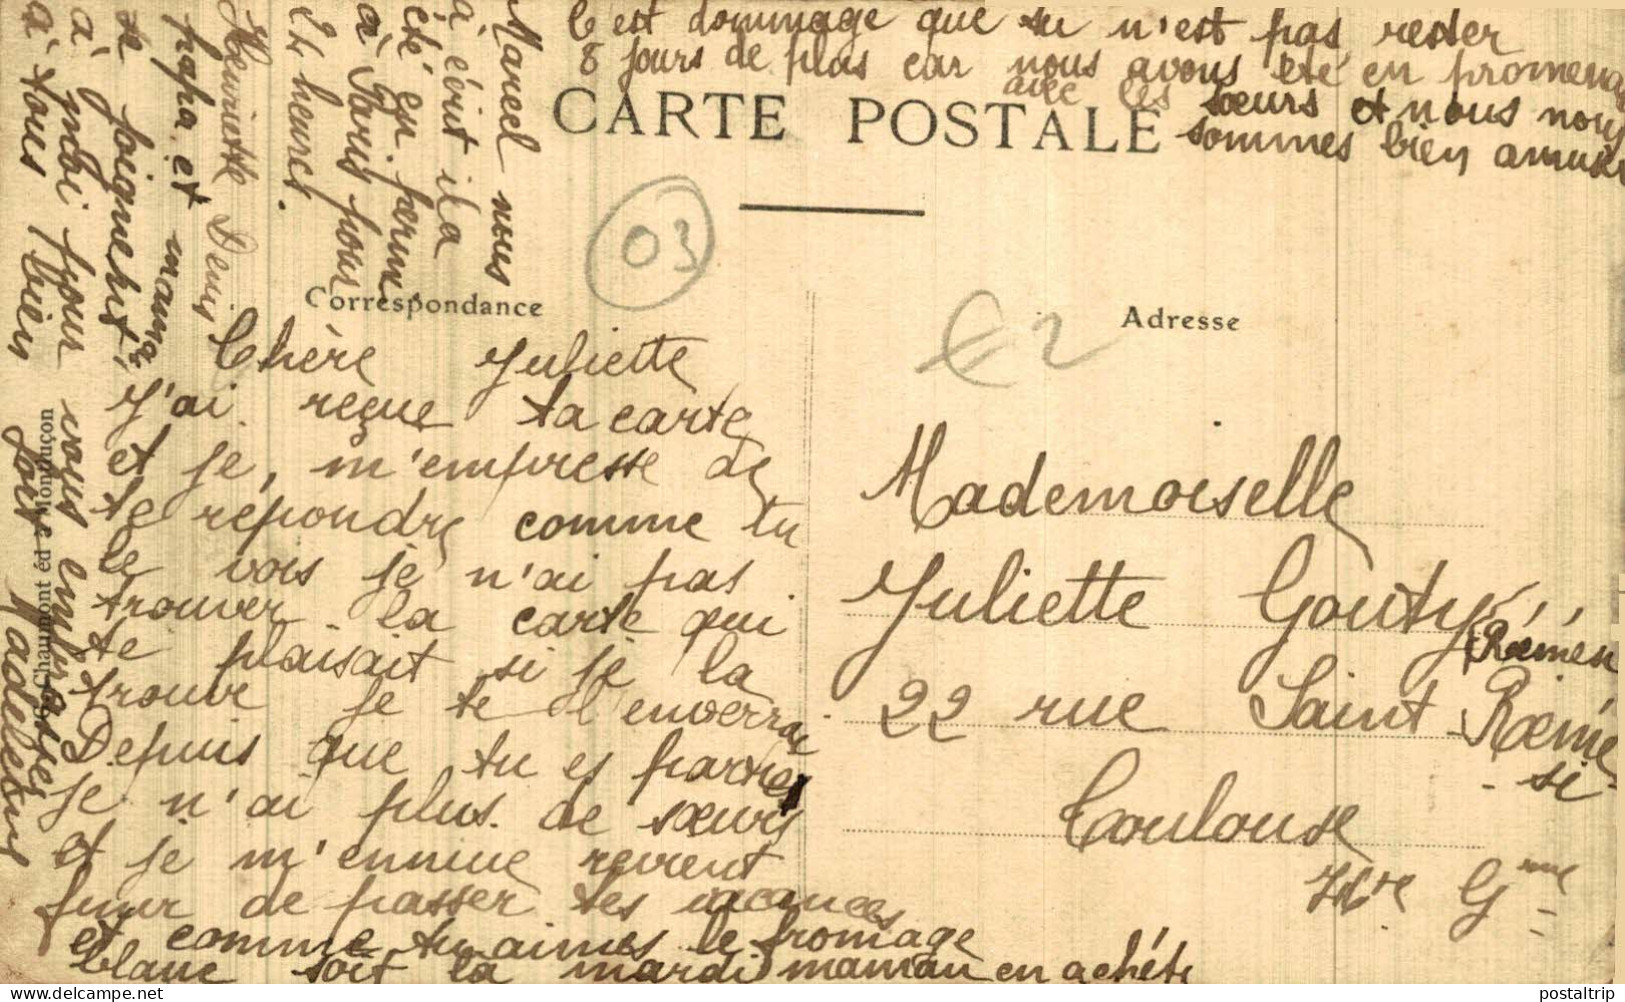 C'est dommage que tu n'est pas rester
8 jours de plus car nous avons été en promenade
avec les sœurs et nous nous
sommes bien amusé
CARTE POSTALE
03
€2
Correspondance
Adresse
Chère Juliette
J'ai reçue ta carte
et je, m'empresse de
te répondre comme tu
le vois je n'ai pas
trouver la carte qui
te plaisait si je la
trouve je te l'enverrai
Depuis que tu es partie
je n'ai plus de sœurs
et je m'ennuie revient
finir de passer tes vacances
et comme tu aimes le fromage
blanc soit la mardi maman en achéte
Mademoiselle
Juliette Gouty
22 rue Saint Rémésie
Toulouse
Hte Gne
Marcel nous
a écrit il a
été en perme
à Paris pour
24 heures.
Henriette Denis
papa et maman
se joignent
à moi pour vous embrasser
à tous bien fort
Madeleine
Chaumont éd à Montluçon